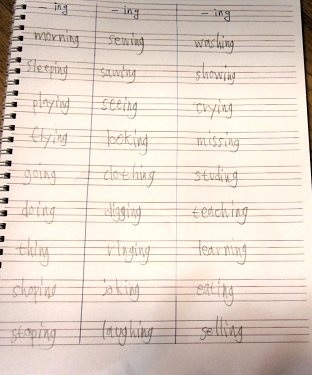 - ing - ing - ing
morning sewing washing
sleeping sawing showing
playing seeing crying
flying looking missing
going clothing studing
doing digging teaching
thing ringing learning
shoping joking eating
stoping laughing selling